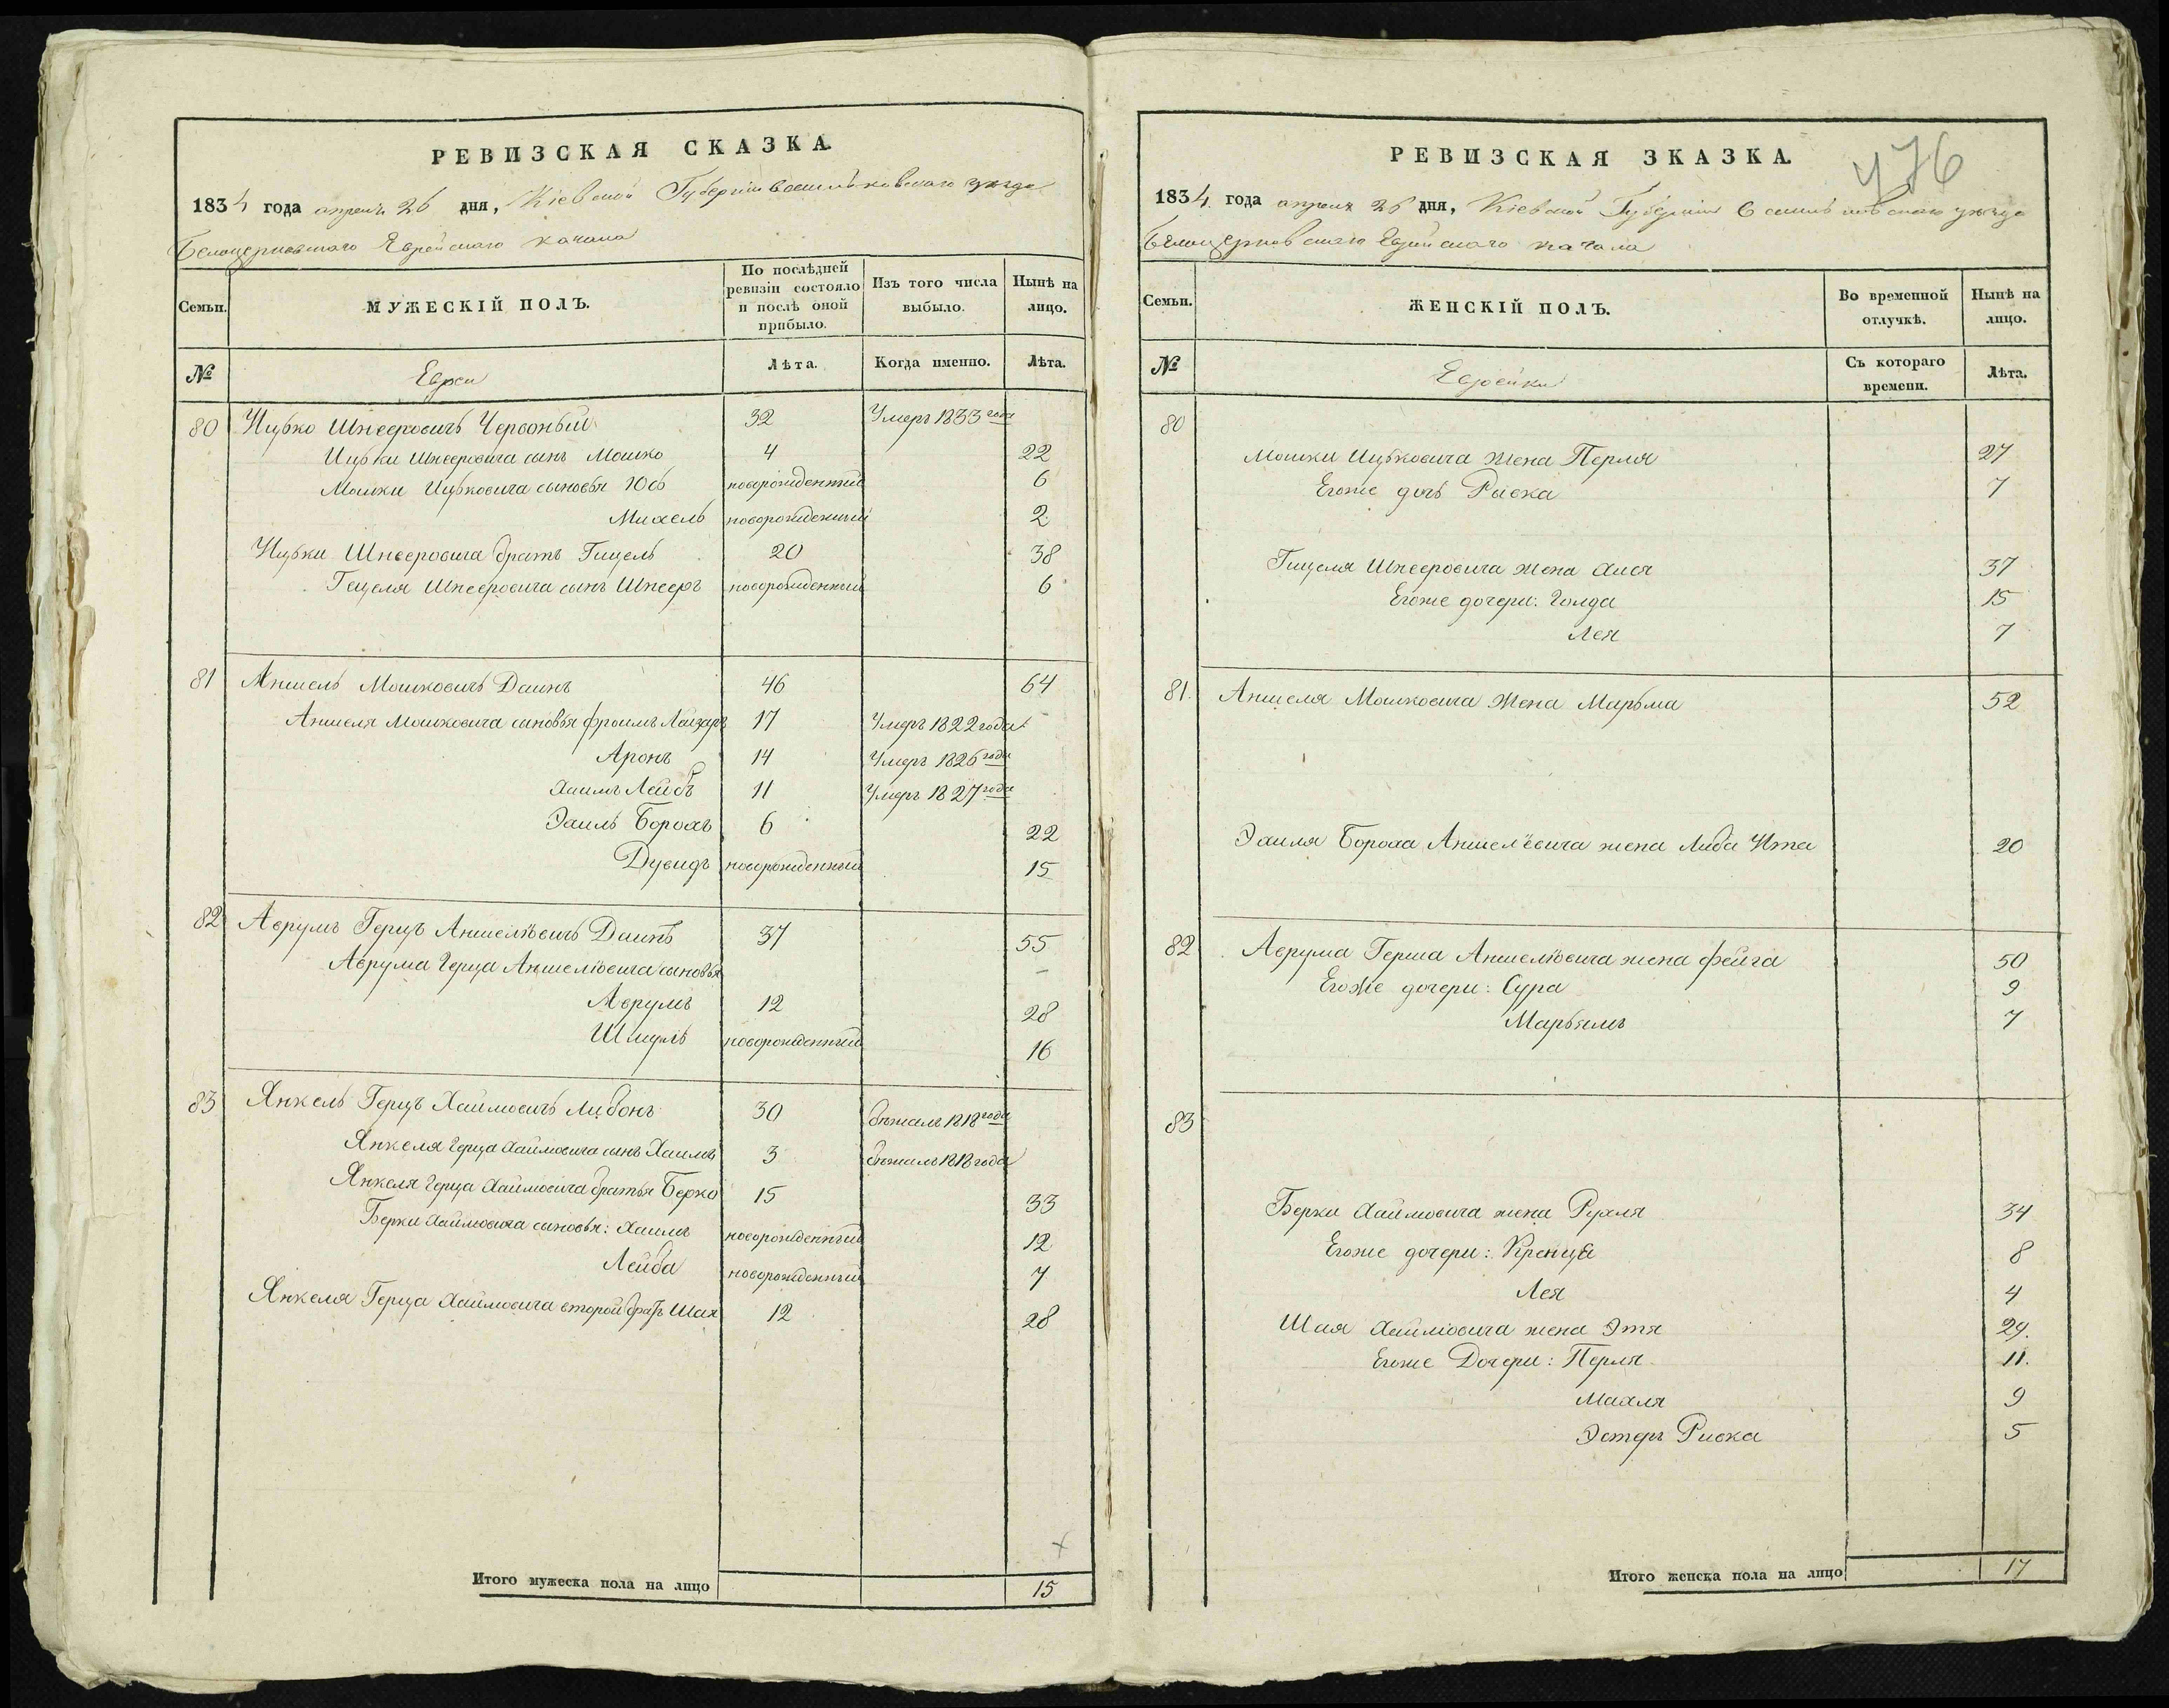 РЕВИЗСКАЯ СКАЗКА.
1834 года апреля 26 дня, Кіевской Губерніи Васильковскаго уезда
Белоцерковскаго Еврейскаго Кагала
Семьи.
МУЖЕСКІЙ ПОЛЪ.
По послѣдней ревизіи состояло и послѣ оной прибыло.
Изъ того числа выбыло.
Нынѣ на лицо.
№
Евреи
Лѣта.
Когда именно.
Лѣта.
80 Ицько Шнееровичь Червоный 32 Умеръ 1833 года
Ицьки Шнееровича сынъ Мошко 4 22
Мошки Ицьковича сыновья Юсь новорожденный 6
Михель новорожденный 2
Ицьки Шнееровича братъ Гицель 20 38
Гецеля Шнееровича сынъ Шнееръ новорожденный 6
81 Аншель Мошковичь Даинъ 46 64
Аншеля Мошковича сыновья Фроимъ Лейзаръ 17 Умеръ 1822 года
Аронъ 14 Умеръ 1826 года
Хаимъ Лейбъ 11 Умеръ 1827 года
Эхиль Борохъ 6 22
Дувидъ новорожденный 15
82 Аврумъ Герцъ Аншелевичь Даинъ 37 55
Аврума Герца Аншелевича сыновья
Аврумъ 12 28
Шмуль новорожденный 16
83 Янкель Герцъ Хаймовичь Либонъ 30 бежалъ 1818 года
Янкеля Герца Хаймовича сынъ Хаимъ 3 бежалъ 1818 года
Янкеля Герца Хаймовича братья Берко 15 33
Берки Хаймовича сыновья: Хаимъ новорожденный 12
Лейба новорожденный 7
Янкеля Герца Хаймовича второй братъ Шая 12 28
Итого мужеска пола на лицо 15
476
РЕВИЗСКАЯ ЗКАЗКА.
1834 года апреля 26 дня, Кіевской Губерніи Васильковскаго уезда
Белоцерковскаго Еврейскаго Кагала
Семьи.
ЖЕНСКІЙ ПОЛЪ.
Во временной отлучкѣ.
Нынѣ на лицо.
№
Еврейки
Съ котораго времени.
Лѣта.
80
Мошки Ицьковича жена Перля 27
Егоже дочь Рыска 7
Гицеля Шнееровича жена Хася 37
Егоже дочери: Голда 15
Лея 7
81. Аншеля Мошковича жена Марьма 52
Эхиля Бороха Аншелевича жена Либа Ита 20
82 Аврума Герша Аншелевича жена Фейга 50
Егоже дочери: Сура 9
Марьямъ 7
83
Берки Хаймовича жена Рухля 34
Егоже дочери: Кренця 8
Лея 4
Шая Хаймовича жена Этя 29.
Егоже Дочери: Перля 11.
Махля 9
Эстеръ Риска 5
Итого женска пола на лицо 17